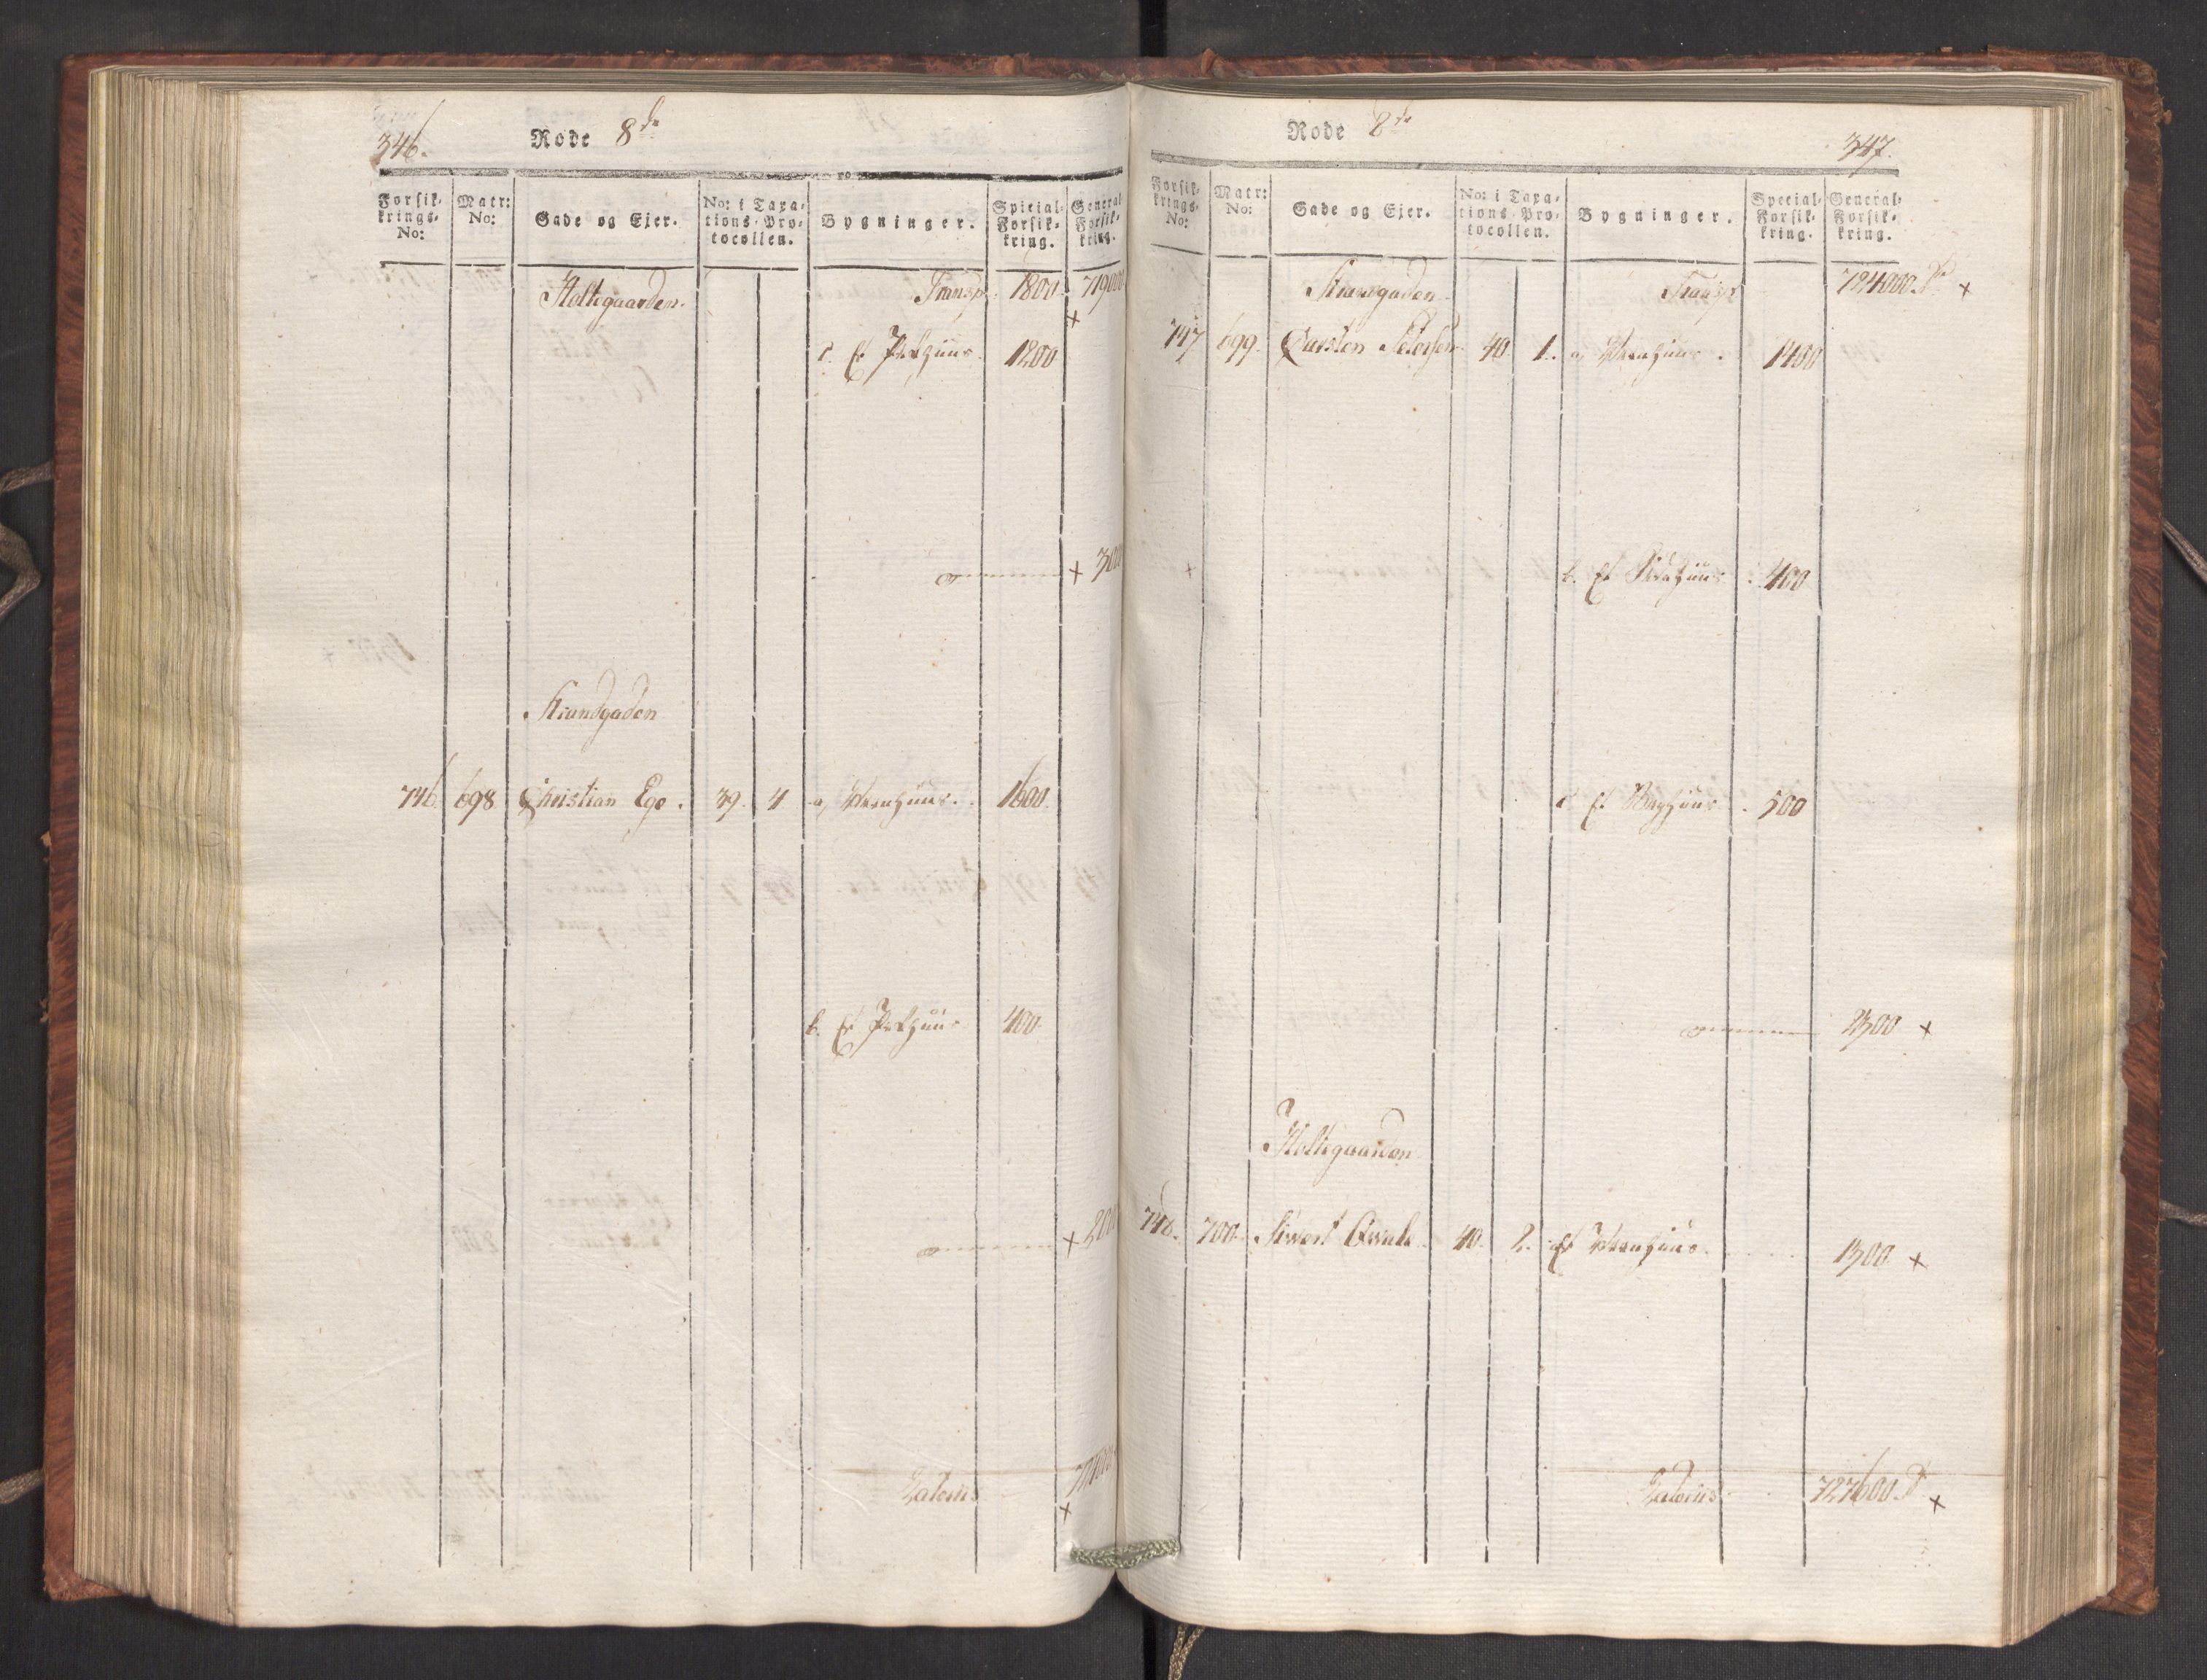 346.
Rode 8de
Forsik-
krings-
No:
Matr:
No:
Gade og Ejer.
No: i Taxa-
tions-Pro-
tocollen.
Bygninger.
Special-
Forsik-
kring.
General-
Forsik-
kring.
Holtegaarden. Transp. 1800. 719000
c. Et 1200
3000
Strandgaden
746. 698 Christian Ege. 39. 4 a, Vaanhuus. 1600.
b. Et 400.
2000
Lateris 724000
Rode 8de
347.
Forsik-
krings-
No:
Matr:
No:
Gade og Ejer.
No: i Taxa-
tions-Pro-
tocollen.
Bygninger.
Special-
Forsik-
kring.
General-
Forsik-
kring.
Strandgaden Transp 724000.
747 699. Carsten Petersen 40. 1. a, Vaanhuus. 1400
b. Et 400
c Et Baghuus 500
2300
Holtegaarden
748. 700. 40. 2. Et Vaanhuus. 1300
Lateris 727600.